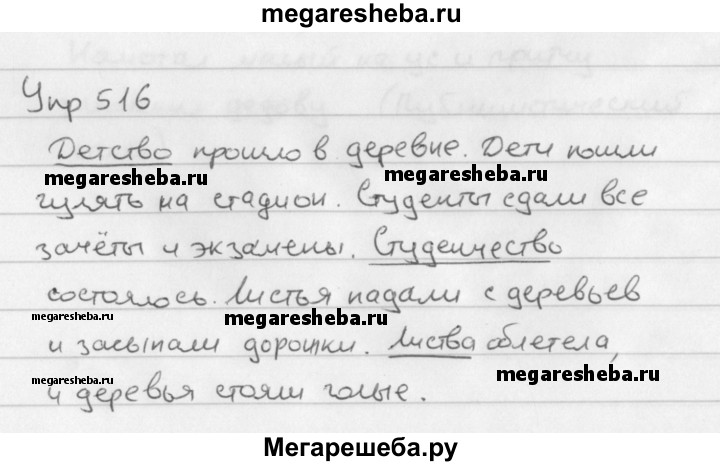 megaresheba.ru
Упр 516
Детство прошло в деревне. Дети пошли
megaresheba.ru megaresheba.ru
гулять на стадион. Студенты сдали все
зачёты и экзамены. Студенчество
состоялось. Листья падали с деревьев
megaresheba.ru megaresheba.ru
и засыпали дорожки. Листва облетела,
megaresheba.ru megaresheba.ru
и деревья стояли голые.
Мегарешеба.ру